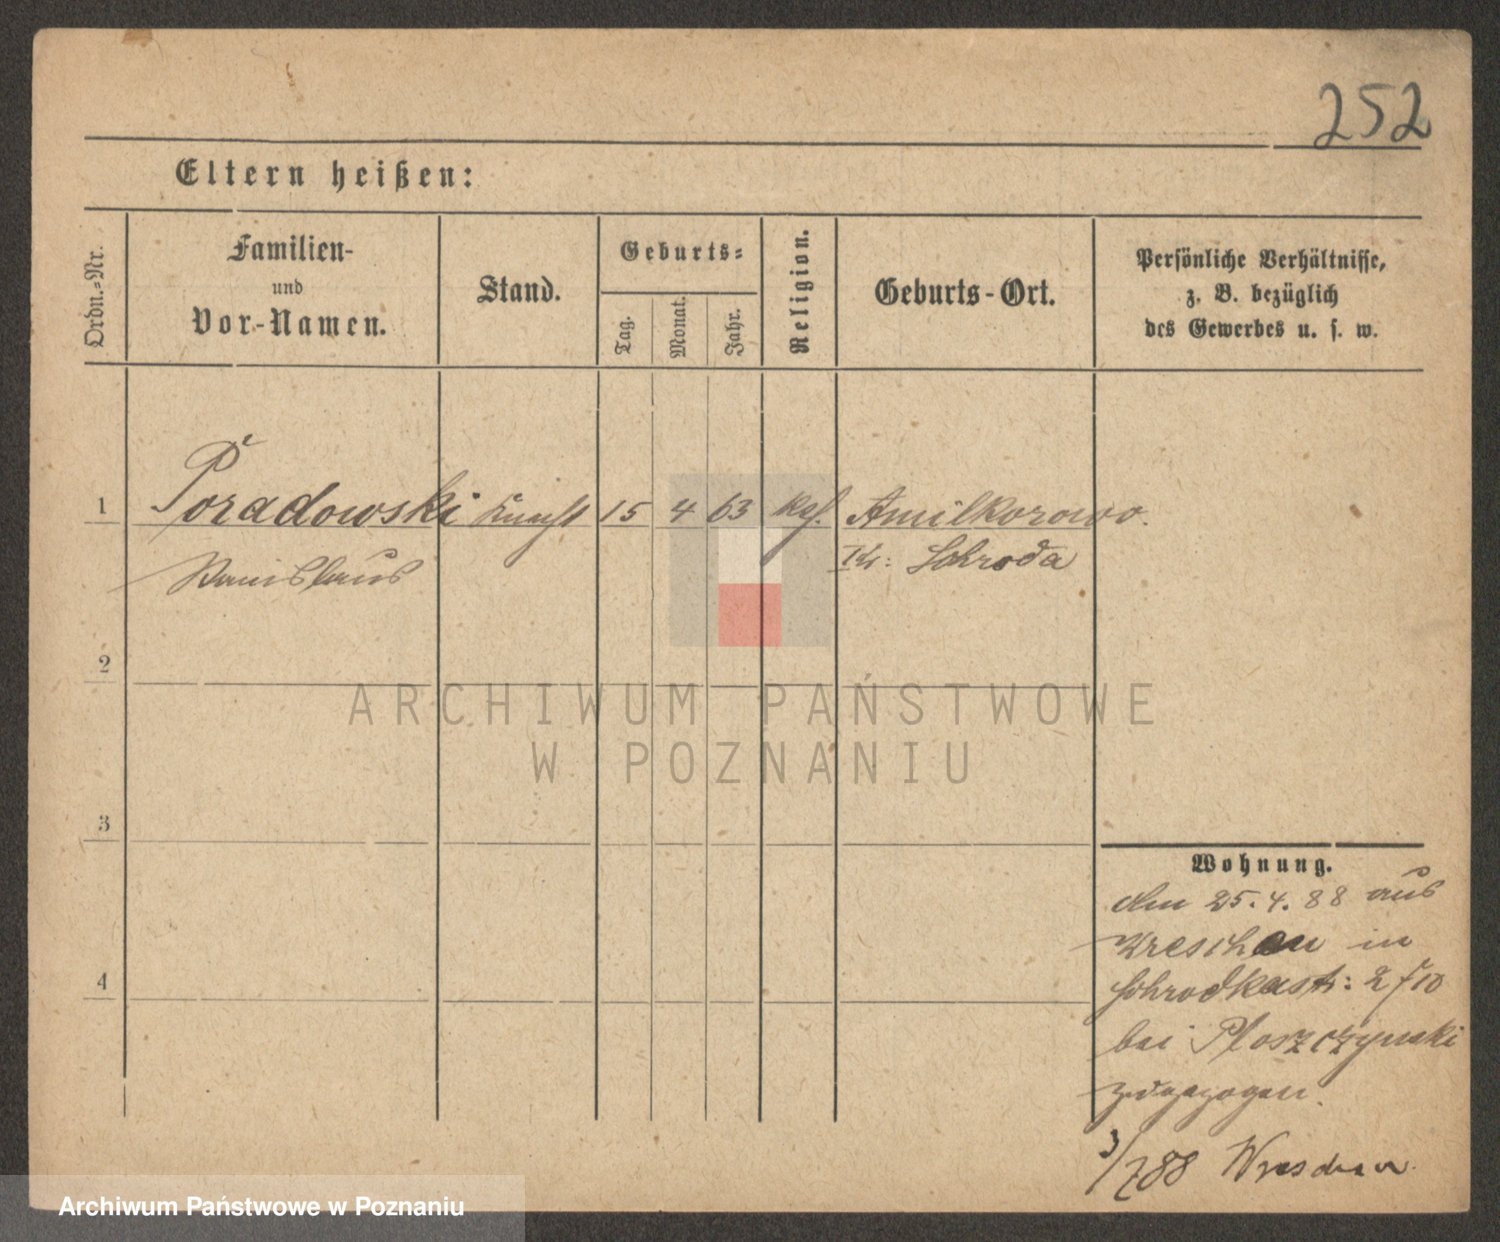 252
Eltern heißen:
Ordn.-Nr.
Familien-
und
Vor-Namen.
Stand.
Geburts-
Tag.
Monat.
Jahr.
Religion.
Geburts-Ort.
Persönliche Verhältnisse,
z. B. bezüglich
des Gewerbes u. s. w.
1 Poradowski Knecht 15 4 63 kat. Amilkorowo.
Stanislaus Kr: Schroda
2
3
4
ARCHIWUM PAŃSTWOWE
W POZNANIU
Wohnung.
Am 25.4.88 aus
Wreschen in
Schrodkastr: 2/10
bei Ploszczynski
zugezogen.
3/788 Wreschen.
Archiwum Państwowe w Poznaniu